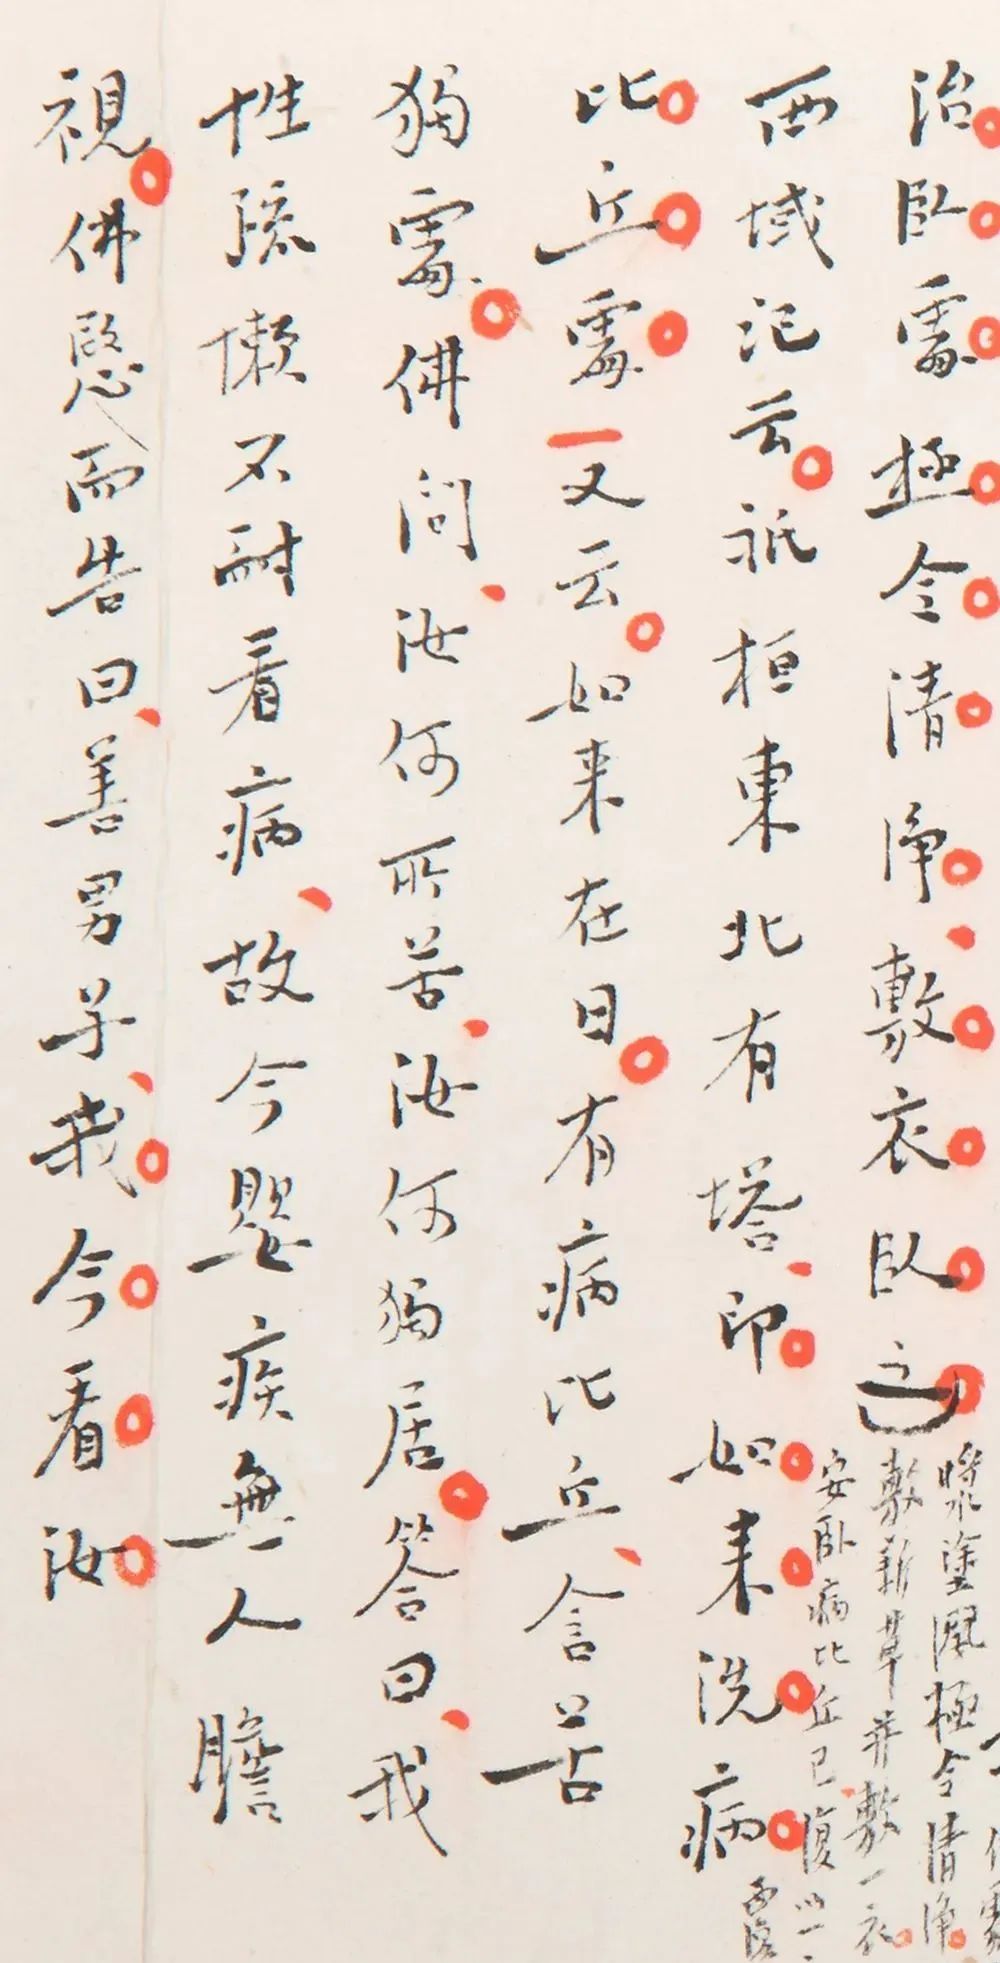 治卧處極令清淨敷衣卧之
漿塗㵱極令清淨
敷新草并敷一衣
安卧病比丘已復以一
西域記云祇桓東北有塔印如來洗病
比丘處又云如來在日有病比丘含苦
獨處佛問汝何所苦汝何獨居答曰我
性疏懶不耐看病故今嬰疾無人瞻
視佛愍而告曰善男子我今看汝